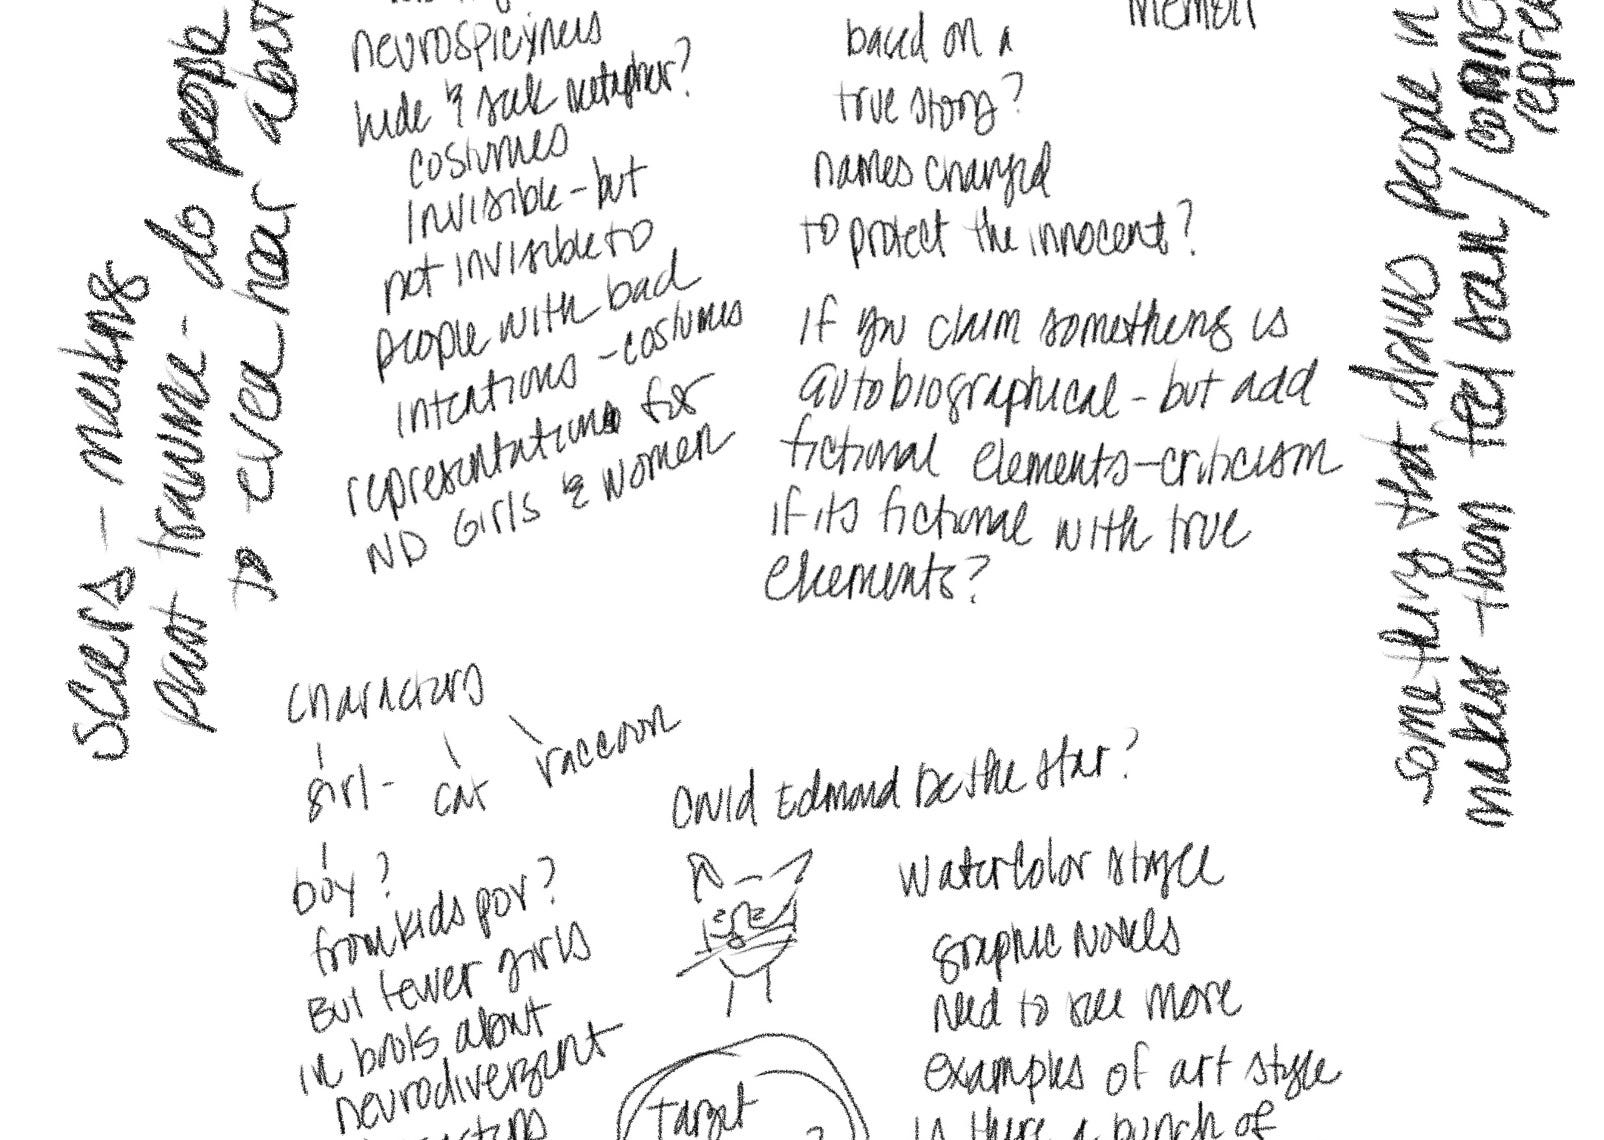 scars - masking
past trauma - do people
to even hear about
neurospicyness
hide & seek metaphor?
costumes
invisible - but
not invisible to
people with bad
intentions - costumes
representations for
ND Girls & Women
Memoir
based on a
true story?
names changed
to protect the innocent?
if you claim something is
autobiographical - but add
fictional elements - criticism
if its fictional with true
elements?
something that draws people in
makes them feel
characters
girl -
cat
raccoon
boy?
from kids pov?
But fewer girls
in books about
neurodivergent
Could Edmond be the star?
watercolor style
graphic novels
need to see more
examples of art style
is there a bunch of
Target